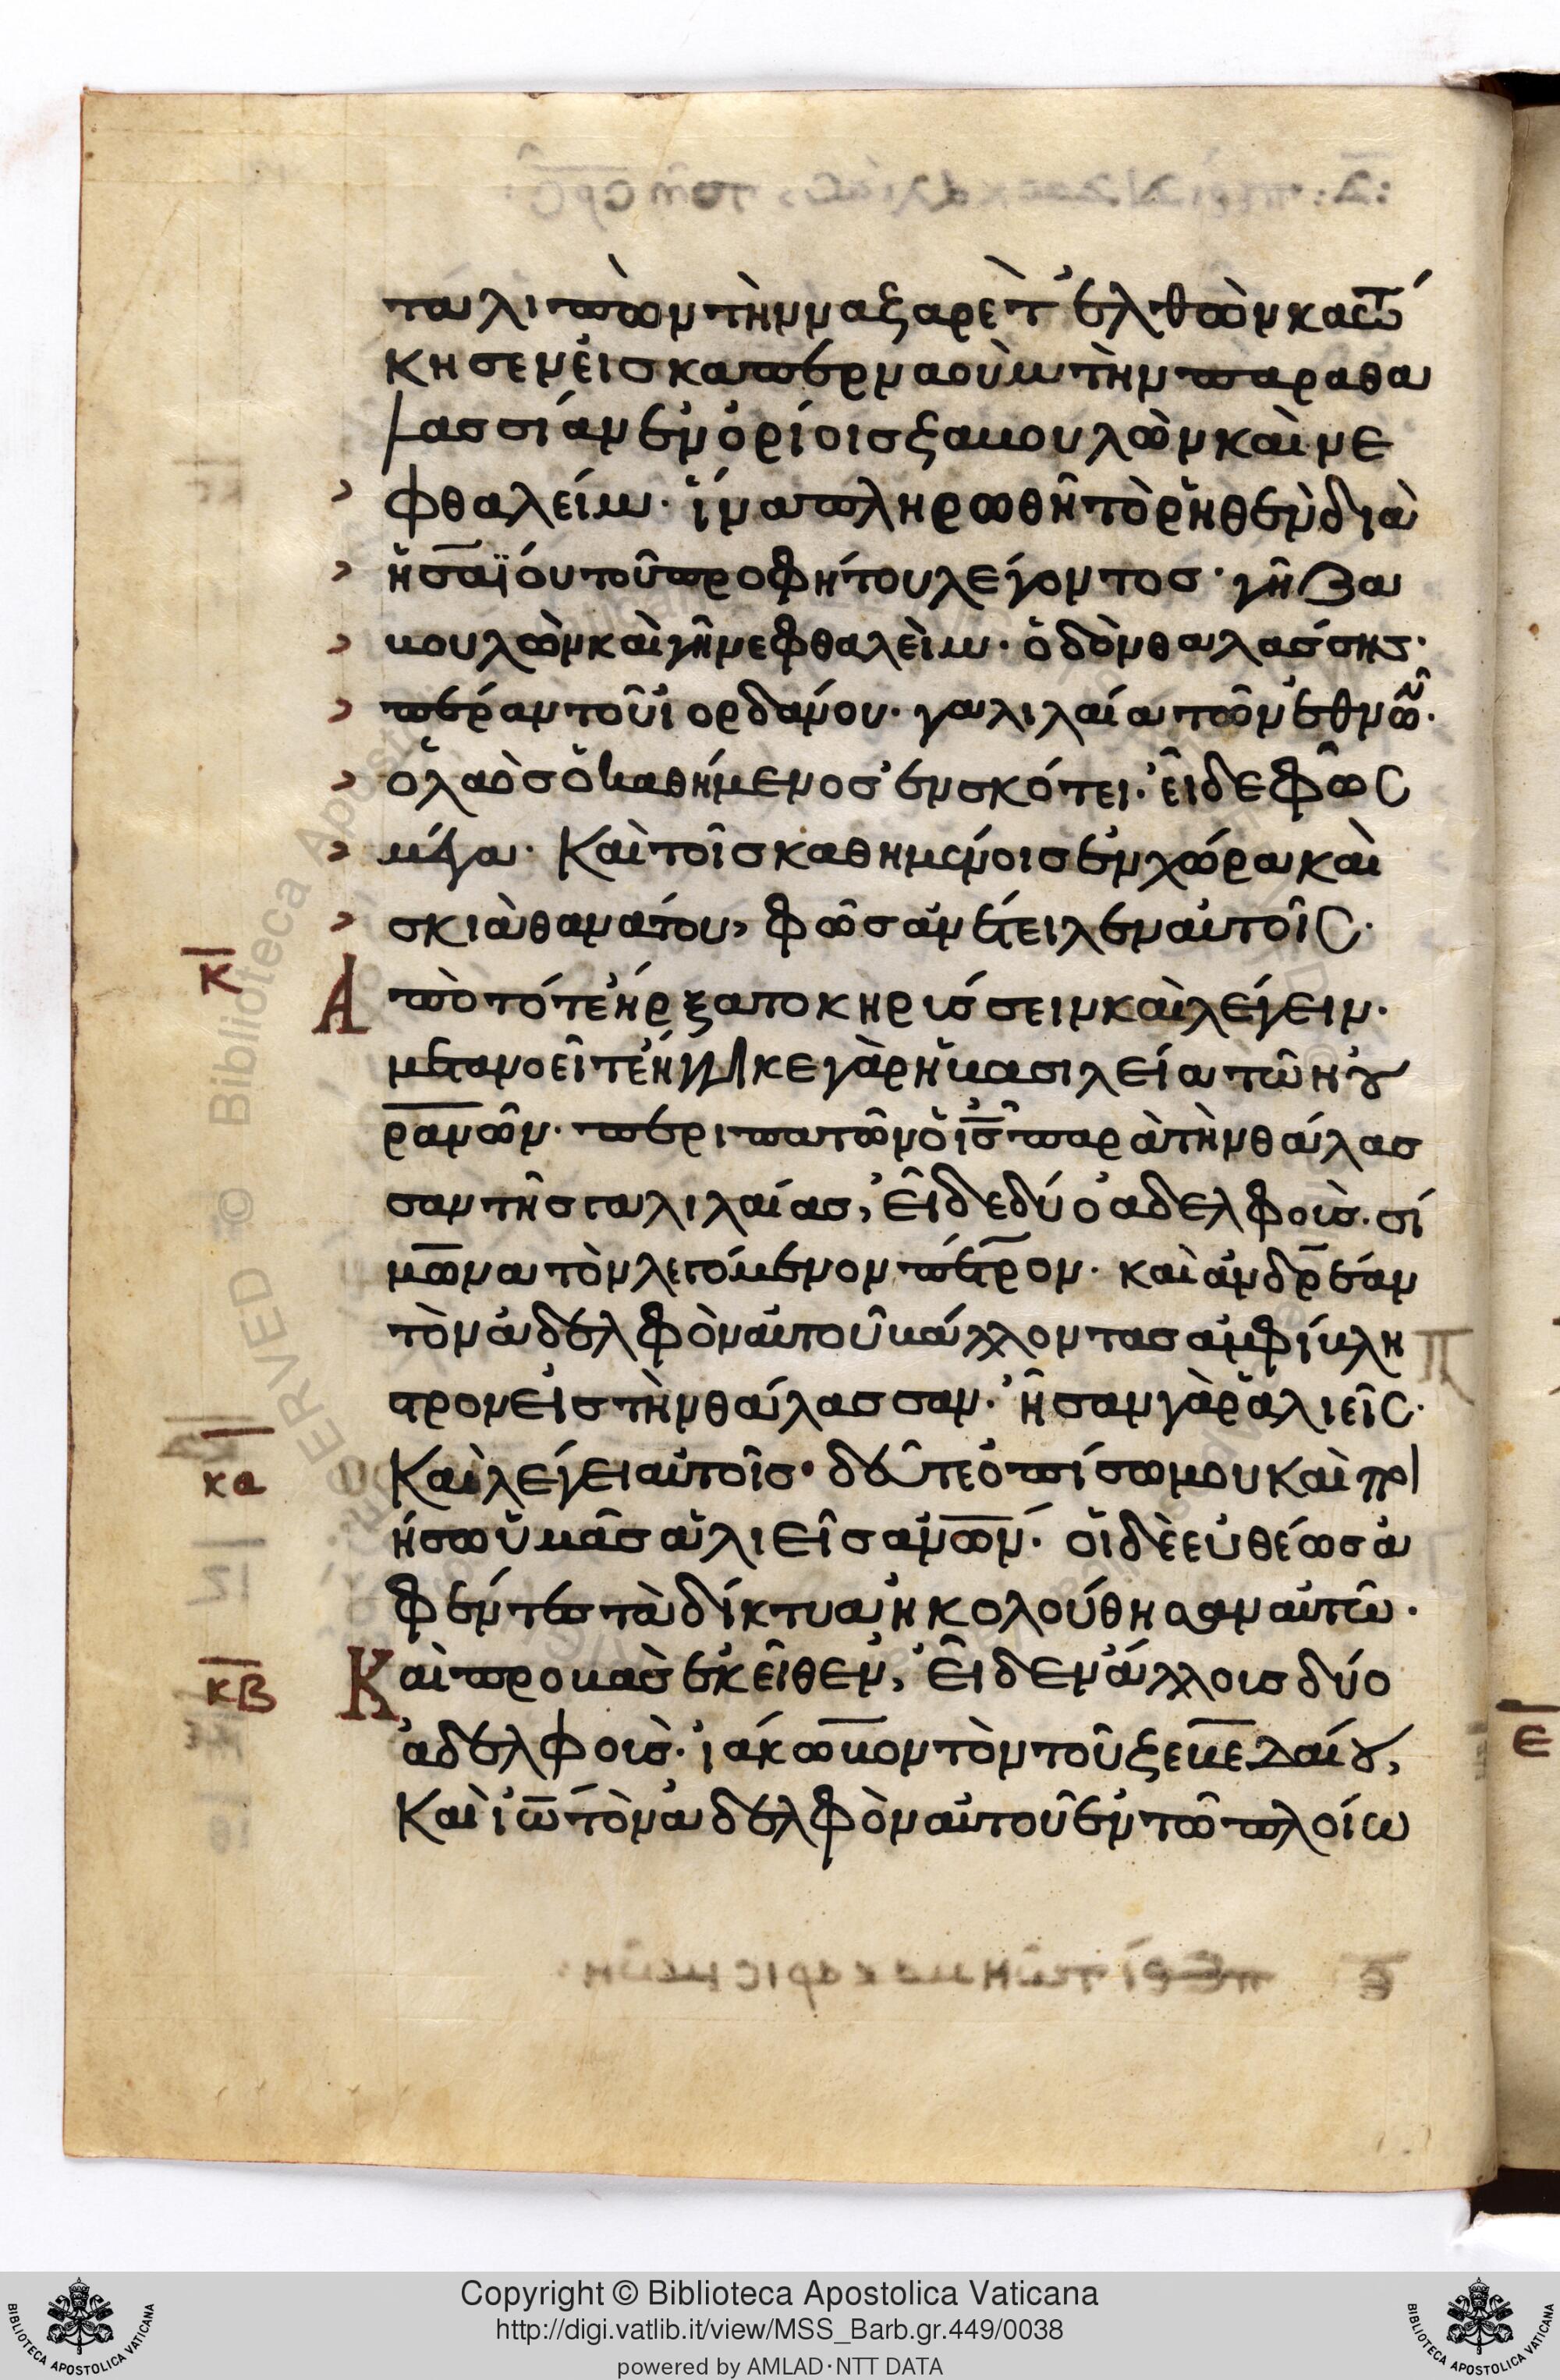 ταλιπὼν τὴν ναζαρὲτ ἐλθὼν κατώ
κησεν εἰς καπερναοὺμ τὴν παραθα
λασσίαν ἐν ὁρίοις ζαβουλὼν καὶ νε
φθαλείμ· ἵνα πληρωθῆ τὸ ρηθὲν διὰ
ἡσαΐου τοῦ προφήτου λέγοντος· γῆ ζα
βουλὼν καὶ γῆ νεφθαλεὶμ· ὁδὸν θαλάσσης·
πέραν τοῦ ἰορδάνου· γαλιλαία τῶν ἐθνῶν·
ὁ λαὸς ὁ καθήμενος ἐν σκότει· εἶδε φῶς
μέγα· Καὶ τοῖς καθημένοις ἐν χώρα καὶ
σκιᾶ θανάτου, φῶς ἀνέτειλεν αὐτοῖς·
κ
Ἀ
πὸ τότε ἤρξατο κηρύσσειν καὶ λέγειν·
μετανοεῖτε ἤγγικε γὰρ ἡ βασιλεία τῶν ου
ρανῶν· περιπατῶν ὁ ις παρὰ τὴν θάλασ
σαν τῆς γαλιλαίας, εἶδε δύο ἀδελφούς· σί
μωνα τὸν λεγόμενον πέτρον· καὶ ἀνδρέαν
τὸν ἀδελφὸν αὐτοῦ βάλλοντας ἀμφίβλη
στρον εἰς τὴν θάλασσαν· ἦσαν γὰρ ἁλιεῖς·
κα
Καὶ λέγει αὐτοῖς· δεῦτε ὀπίσω μου καὶ ποι
ήσω ὑμᾶς ἁλιεῖς ανων· οἱ δὲ εὐθέως ἀ
φέντες τὰ δίκτυα ἠκολούθησαν αὐτῶ·
κβ
Καὶ προβὰς ἐκεῖθεν, εἶδεν ἄλλους δύο
ἀδελφούς· ἰάκωβον τὸν τοῦ ζεβεδαίου,
Καὶ ἰω τὸν ἀδελφὸν αὐτοῦ ἐν τῶ πλοίω
ε
© Biblioteca Apostolica Vaticana
Copyright © Biblioteca Apostolica Vaticana
http://digi.vatlib.it/view/MSS_Barb.gr.449/0038
powered by AMLAD·NTT DATA
BIBLIOTECA APOSTOLICA VATICANA
BIBLIOTECA APOSTOLICA VATICANA